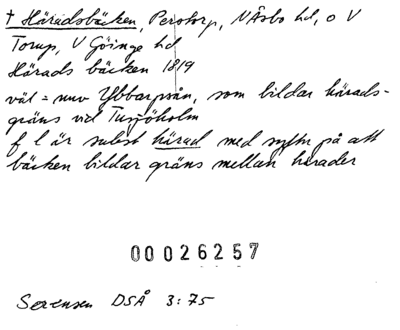 † Häradsbäcken, Perstorp, N Åsbo hd, o V
Torup, V Göinge hd
Härads bäcken 1819
väl = nuv Ybbarpsån, som bildar härads-
gräns vid Tussjöholm
f l är subst härad med syftn på att
bäcken bildar gräns mellan härader
00026257
Sørensen DSÅ 3:75